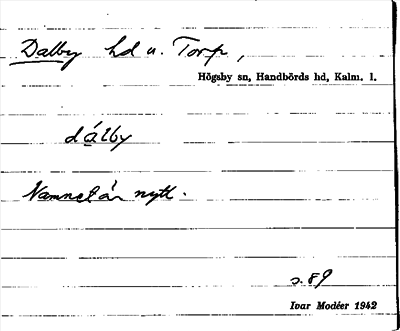 Dalby hd u. Torp,
Högsby sn, Handbörds hd, Kalm. l.
dálby
Namnet är nytt.
s. 89
Ivar Modéer 1942